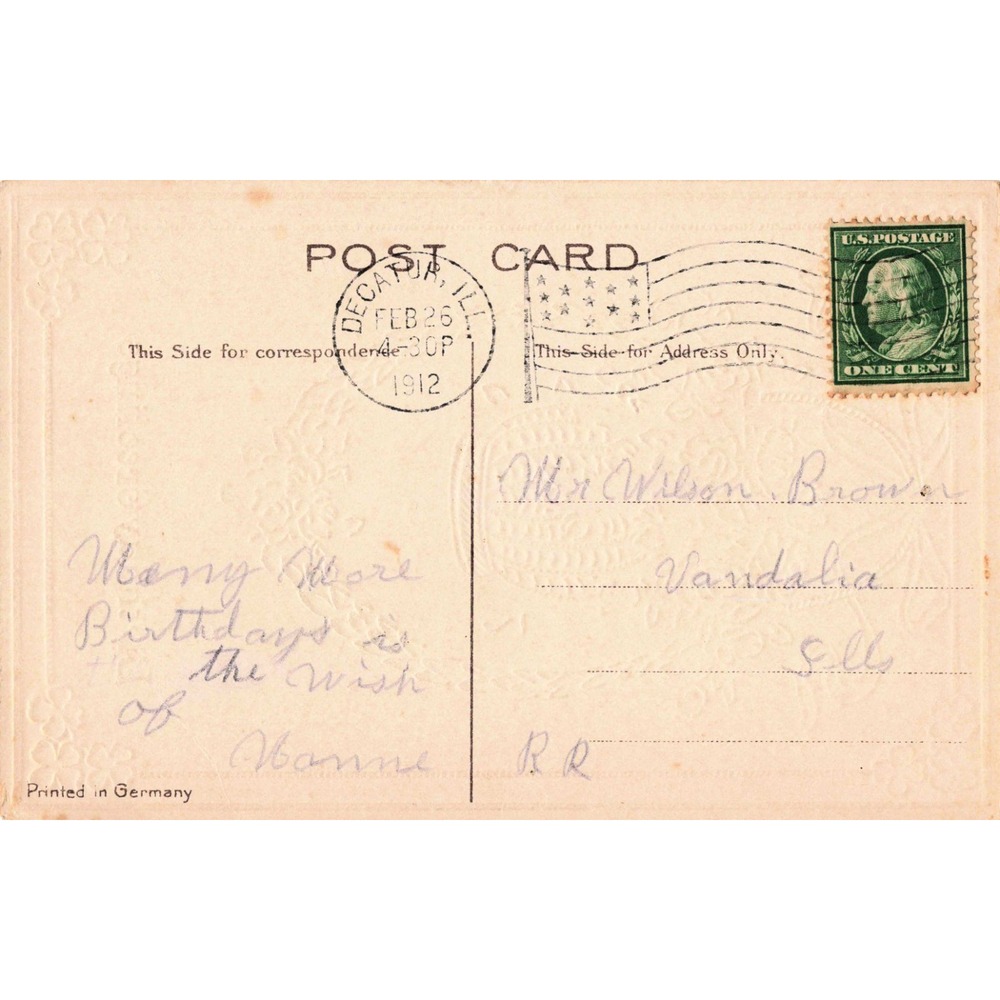 POST CARD
DECATUR, ILL.
FEB 26
4-30P
1912
U.S. POSTAGE
ONE CENT
This Side for correspondence
This Side for Address Only.
Many More
Birthdays is
the Wish
of
Nanne
Mr Wilson Brown
Vandalia
Ills
R R
Printed in Germany